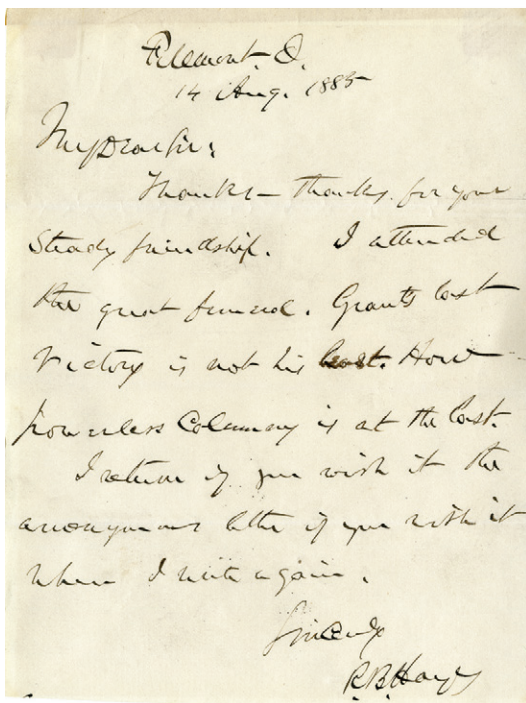 Fremont. O.
14 Aug. 1885
My Dear Sir:
Thanks— thanks for your
steady friendship. I attended
the great funeral. Grant's last
victory is not his least. How
powerless Calumny is at the last.
I return if you wish it the
anonymous letter if you wish it
when I write again.
Sincerely
R.B. Hayes